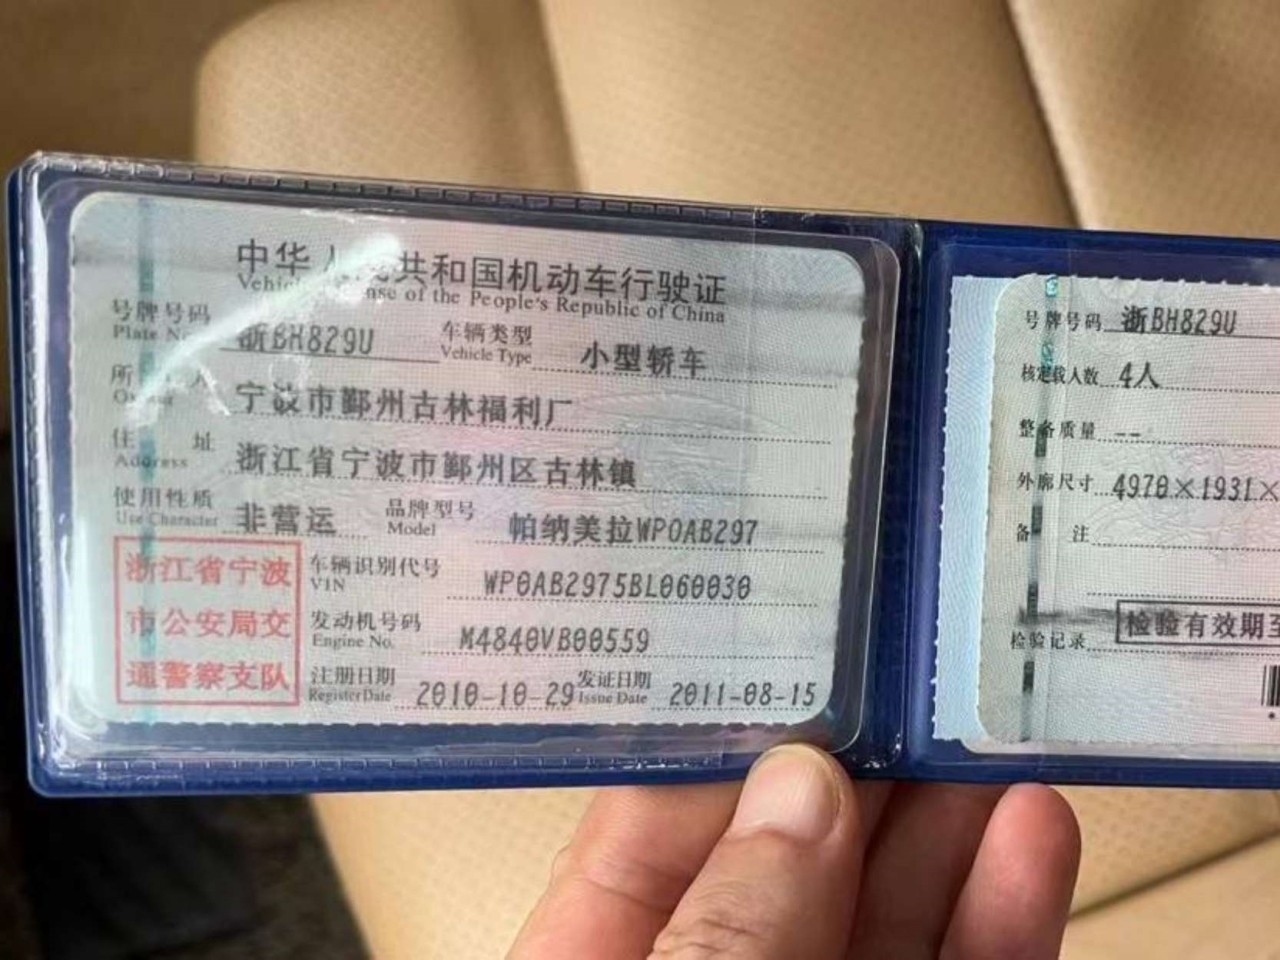 中华人民共和国机动车行驶证
Vehicle License of the People's Republic of China
号牌号码 浙BH829U 车辆类型 小型轿车
Plate No. Vehicle Type
所有人 宁波市鄞州古林福利厂
Owner
住址 浙江省宁波市鄞州区古林镇
Address
使用性质 非营运 品牌型号 帕纳美拉WP0AB297
Use Character Model
浙江省宁波
市公安局交
通警察支队
车辆识别代号 WP0AB2975BL060030
VIN
发动机号码 M4840VB00559
Engine No.
注册日期 2010-10-29 发证日期 2011-08-15
Register Date Issue Date
号牌号码 浙BH829U
核定载人数 4人
整备质量 --
外廓尺寸 4970×1931×
备注
检验记录 检验有效期至